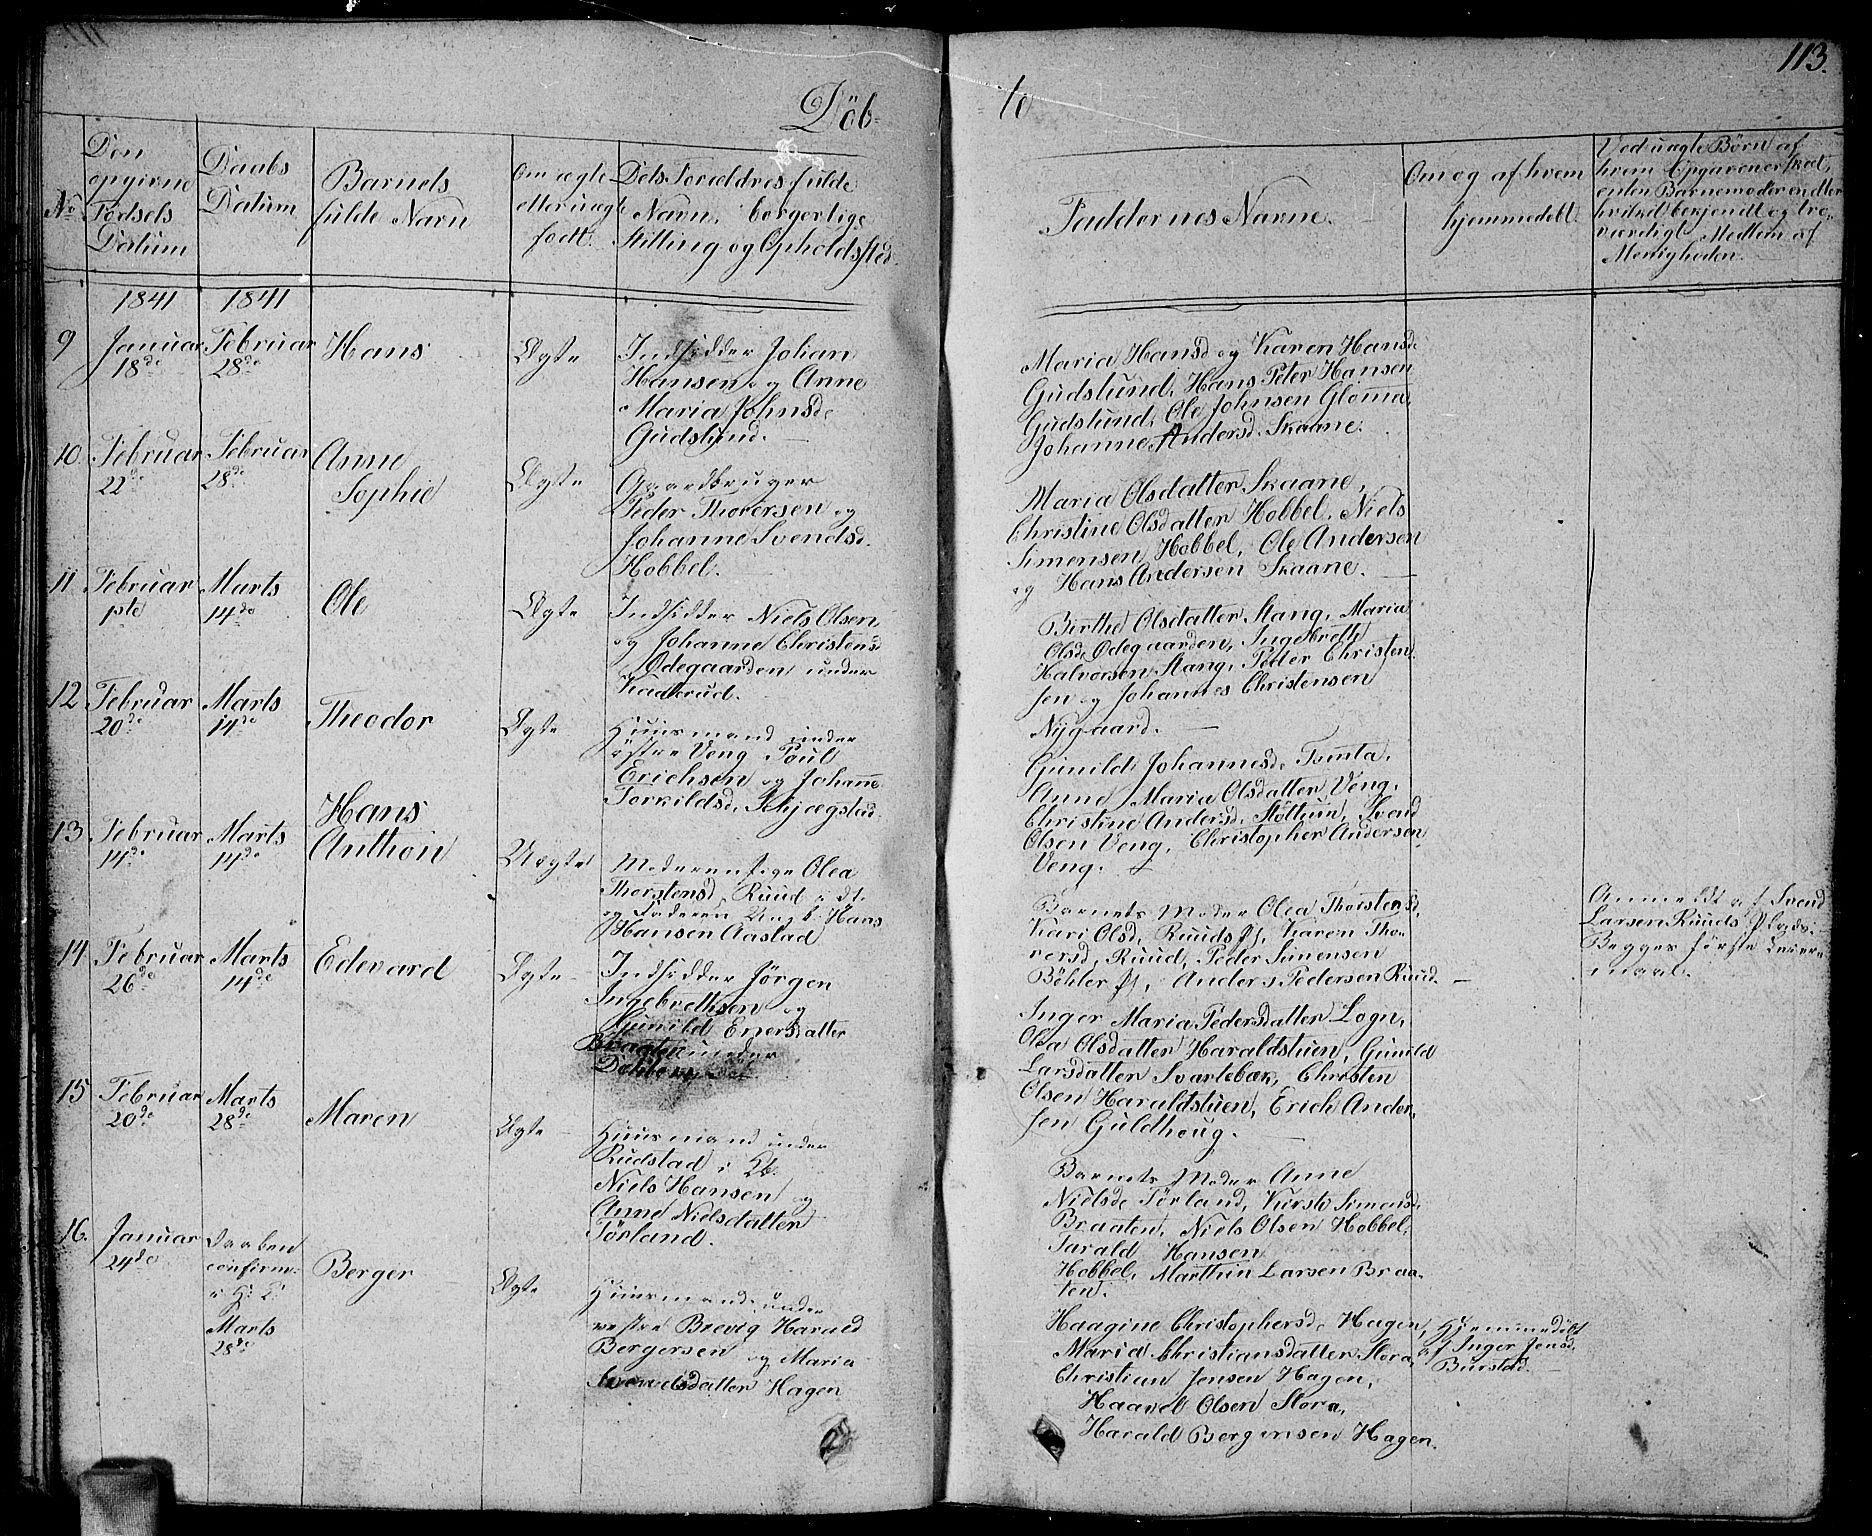 113.
Döb-
te
No
Den
opgivne
Födsels
Datum
Daabs
Datum
Barnets
fulde Navn
Om ægte
eller uægte
födt.
Dets Forældres fulde
Navn, borgerlige
Stilling og Opholdssted.
Faddernes Navne.
Om og af hvem
hjemmedöbt.
Ved uægte Börn af
hvem Opgaven er skeet,
enten Barnemoderen eller
hvilket bekjendt og tro-
værdigt Medlem af
Menigheden.
1841
1841
9
Januar
18de
Februar
28de
Hans
Ægte
Indsidder Johan
Hansen og Anne
Maria Johnsd.
Gudslund.
Maria Hansd. og Karen Hansd.
Gudslund, Hans Peter Hansen
Gudslund, Ole Johnsen Glomma,
Johanne Andersd. Skaane.
10.
Februar
22de
Februar
28de
Anne
Sophie
Ægte
Gaardbruger
Peder Thorersen og
Johanne Svendsd.
Hobbel.
Maria Olsdatter Skaane,
Christine Olsdatter Hobbel, Niels
Simensen Hobbel, Ole Andersen
og Hans Andersen Skaane.
11.
Februar
1ste
Marts
14de
Ole
Ægte
Indsidder Niels Olsen
og Johanne Christensd.
Ødegaarden under
Kaaterud.
Birthe Olsdatter Stang, Maria
Olsd. Ødegaarden, Ingebreth
Halvorsen Stang, Peder Christen-
sen og Johannes Christensen
Nygaard.
12
Februar
20de
Marts
14de
Theodor
Ægte
Huusmand under
östre Veng Poul
Erichsen og Johanne
Torkildsd. Schjægstad.
Gunild Johannesd. Tomta,
Anne Maria Olsdatter Veng,
Christine Andersd. Slöttum, Svend
Olsen Veng, Christopher Andersen
Veng.
13
Februar
14de
Marts
14de
Hans
Anthon
Uægte
Moderen Pige Olea
Thorstensd. Ruud
og Faderen Ungk. Hans
Hansen Aastad
Barnets Moder Olea Thorstensd.
Kari Olsd. Ruuds Pl., Karen Tho-
rersd. Ruud, Peder Simensen
Böhler Pl., Anders Pedersen Ruud.
Anmeldt af Svend
Larsen Ruuds Plads.
Begges förste Leier-
maal.
14
Februar
26de
Marts
14de
Edevard
Ægte
Indsidder Jörgen
Ingebrethsen og
Gunild Enersdatter
Braaten under
Inger Maria Pedersdatter Logn,
Olea Olsdatter Haraldstuen, Gunild
Larsdatter Svartebæk, Christen
Olsen Haraldstuen, Erich Ander-
sen Guldhoug.
15
Februar
20de
Marts
28de
Maren
Ægte
Huusmand under
Rudstad i
Niels Hansen og
Anne Nielsdatter
Törland.
Barnets Moder Anne
Nielsd. Törland, Kirsti Simensd.
Braaten, Niels Olsen Hobbel,
Tarald Hansen
Hobbel, Marthin Larsen Braa-
ten.
16.
Januar
24de
Daaben
confirm.
i H. K.
Marts
28de
Berger
Ægte
Huusmand under
vestre Brevig Harald
Bergersen og Maria
Hagen
Haagine Christophersd. Hagen,
Maria Christiansdatter Stora,
Christian Jensen Hagen,
Haavel Olsen Stora,
Harald Bergersen Hagen.
Hjemmedöbt
af Inger Jensd.
Burstad.